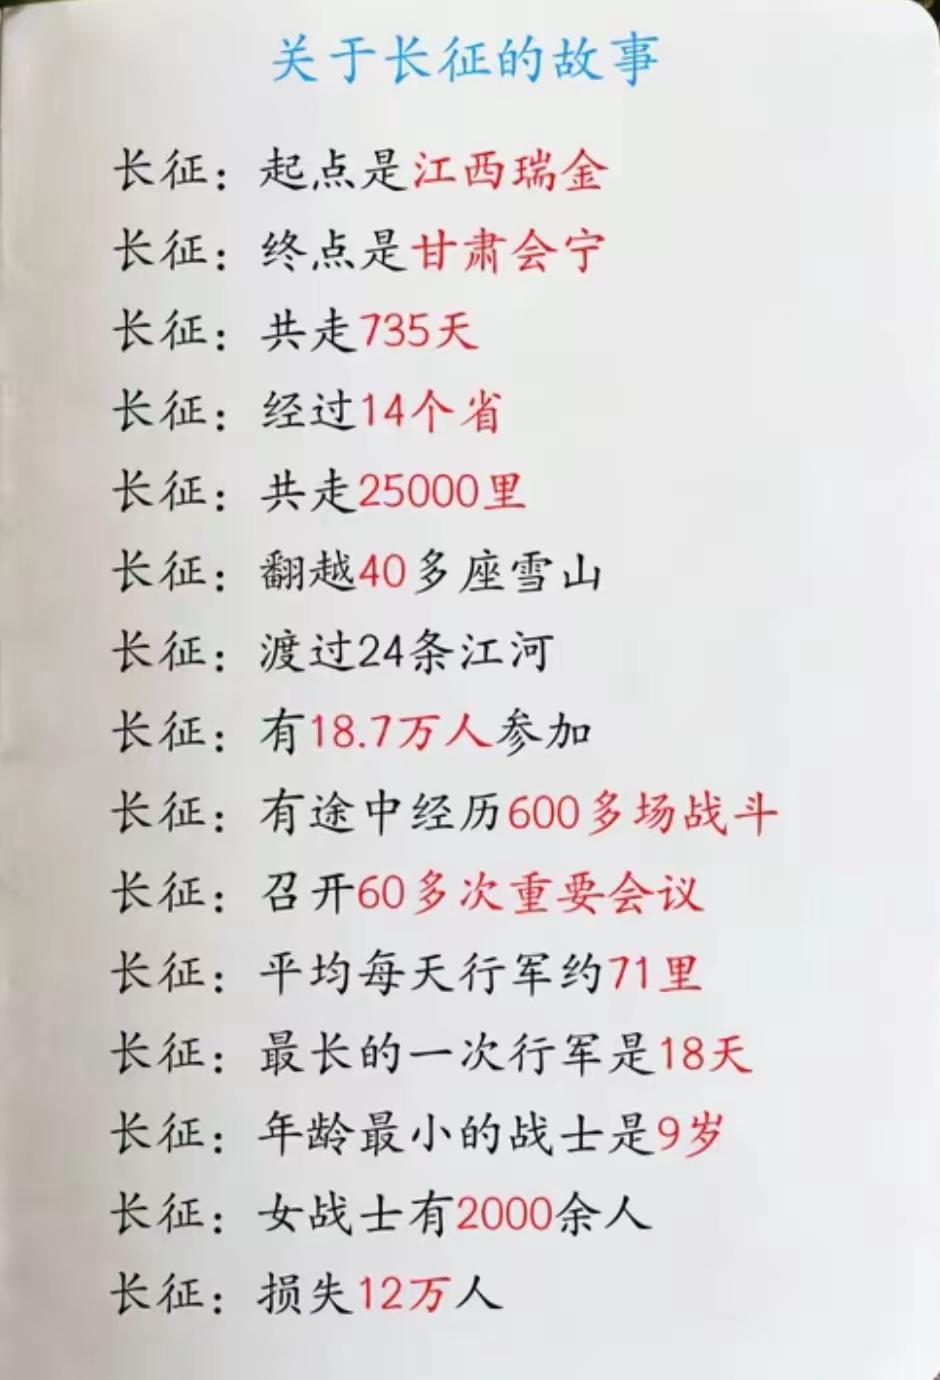 关于长征的故事
长征：起点是江西瑞金
长征：终点是甘肃会宁
长征：共走735天
长征：经过14个省
长征：共走25000里
长征：翻越40多座雪山
长征：渡过24条江河
长征：有18.7万人参加
长征：有途中经历600多场战斗
长征：召开60多次重要会议
长征：平均每天行军约71里
长征：最长的一次行军是18天
长征：年龄最小的战士是9岁
长征：女战士有2000余人
长征：损失12万人